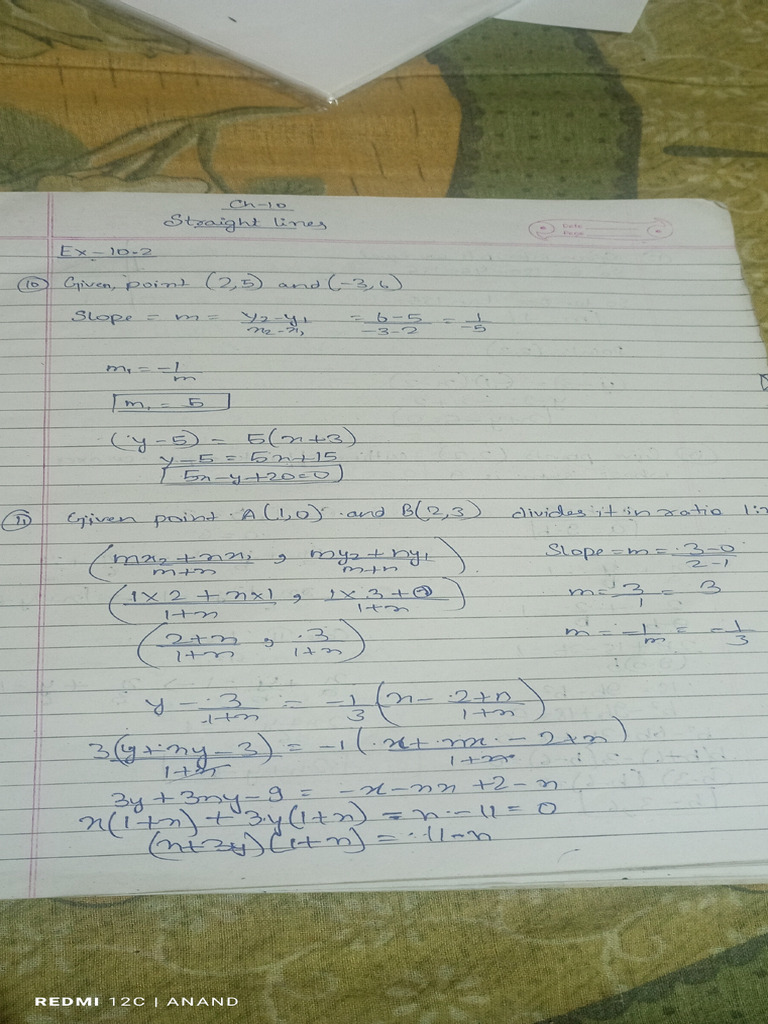 Ch-10
Straight lines
Date
Page
Ex-10.2
(10) Given, point (2,5) and (-3,6)
Slope = m = y2-y1/x2-x1 = 6-5/-3-2 = 1/-5
m1 = -1/m
m1 = 5
(y-5) = 5(x+3)
y-5 = 5x+15
5x-y+20=0
(11) Given point A(1,0) and B(2,3) divides it in ratio 1:n
(mx2+nx1/m+n , my2+ny1/m+n) Slope = m = 3-0/2-1
(1×2+n×1/1+n , 1×3+0/1+n) m = 3/1 = 3
(2+n/1+n , 3/1+n) m = -1/m = -1/3
y - 3/1+n = -1/3 (x - 2+n/1+n)
3(y+ny-3)/1+n = -1(x+nx-2+n)/1+n
3y+3ny-9 = -x-nx+2-n
x(1+n)+3y(1+n) = n-11=0
(x+3y)(1+n) = 11-n
REDMI 12C | ANAND